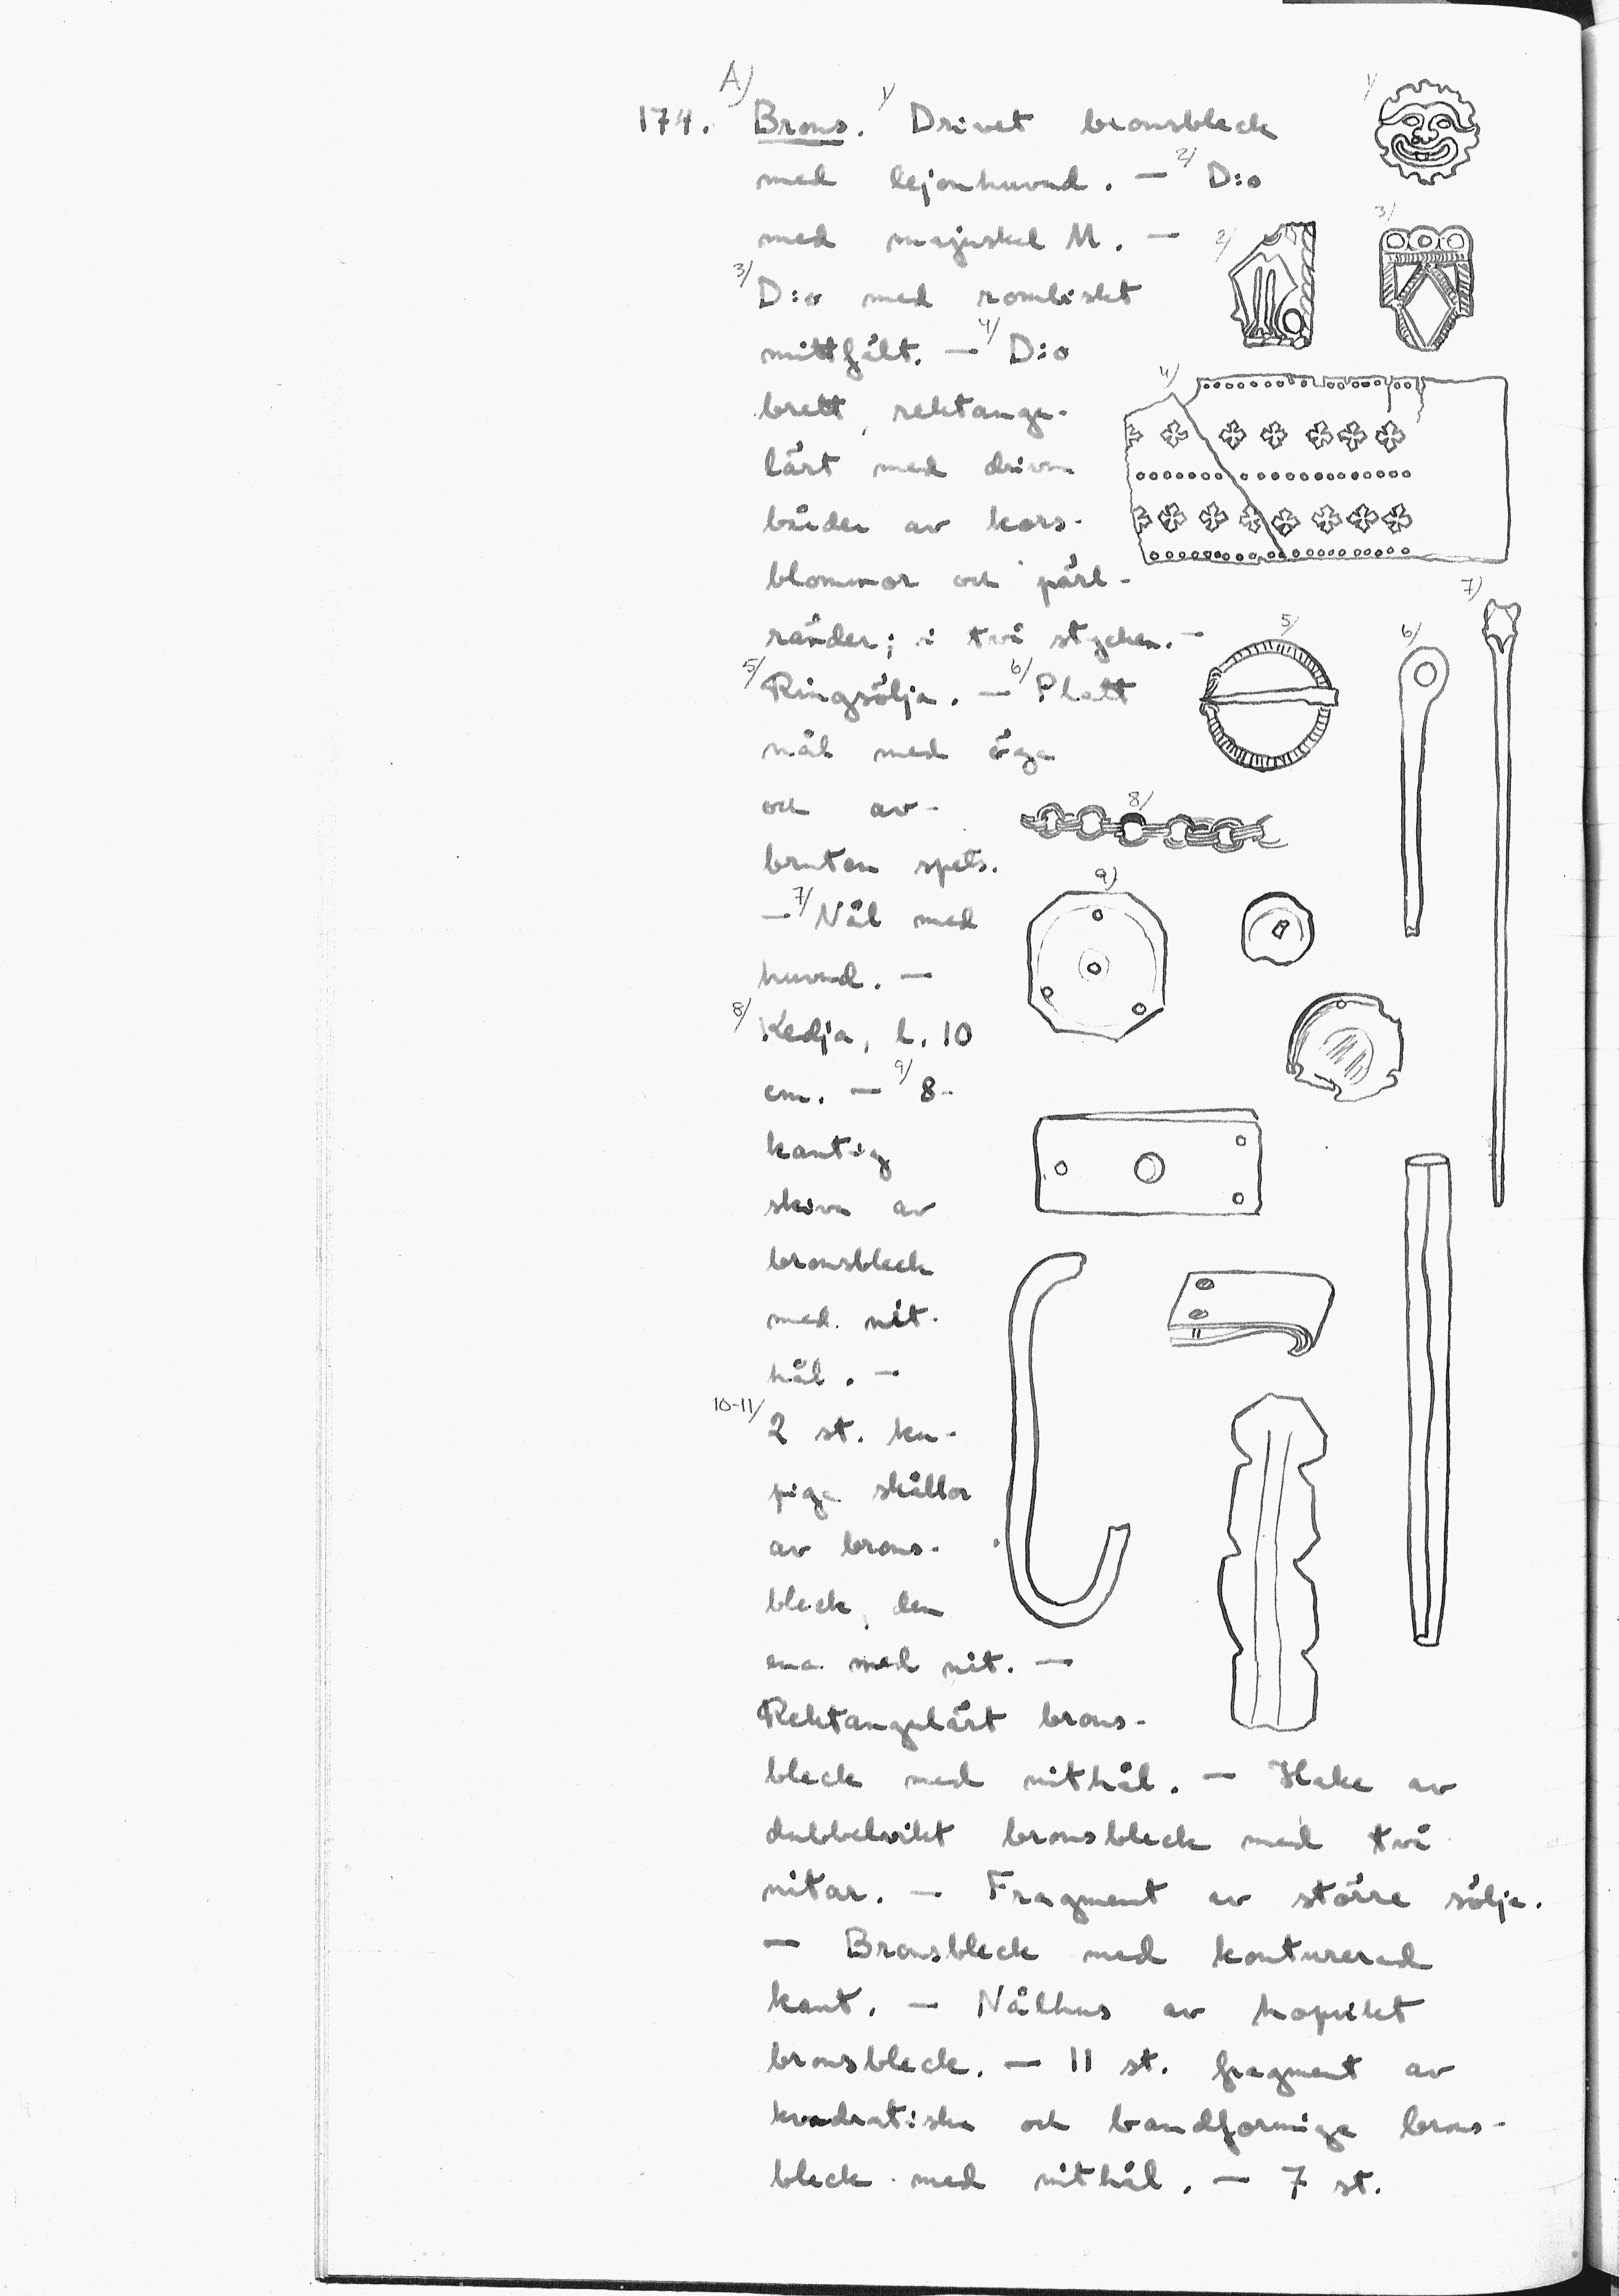 A)
174. Brons. 1/ Drivet bronsbleck 1/
med lejonhuvud. — 2/ D:o
med majuskel M. — 2/ 3/
3/ D:o med rombiskt
mittfält. — 4/ D:o
brett, rektangu- 4/
lärt med drivna
bårder av kors-
blommor och pärl-
ränder; i två stycken. — 7)
5/ Ringsölja. — 6/ Platt 5/ 6/
nål med öga
och av- 8/
bruten spets.
— 7/ Nål med 9)
huvud. —
8/ Kedja, l. 10
cm. — 9/ 8-
kantig
skiva av
bronsbleck
med nit-
hål. —
10-11/ 2 st. ku-
piga skållor
av brons-
bleck, den
ena med nit. —
Rektangulärt brons-
bleck med nithål. — Hake av
dubbelvikt bronsbleck med två
nitar. — Fragment av större sölja.
— Bronsbleck med konturerad
kant. — Nålhus av hopvikt
bronsbleck. — 11 st. fragment av
kvadratiska och bandformiga brons-
bleck med nithål. — 7 st.